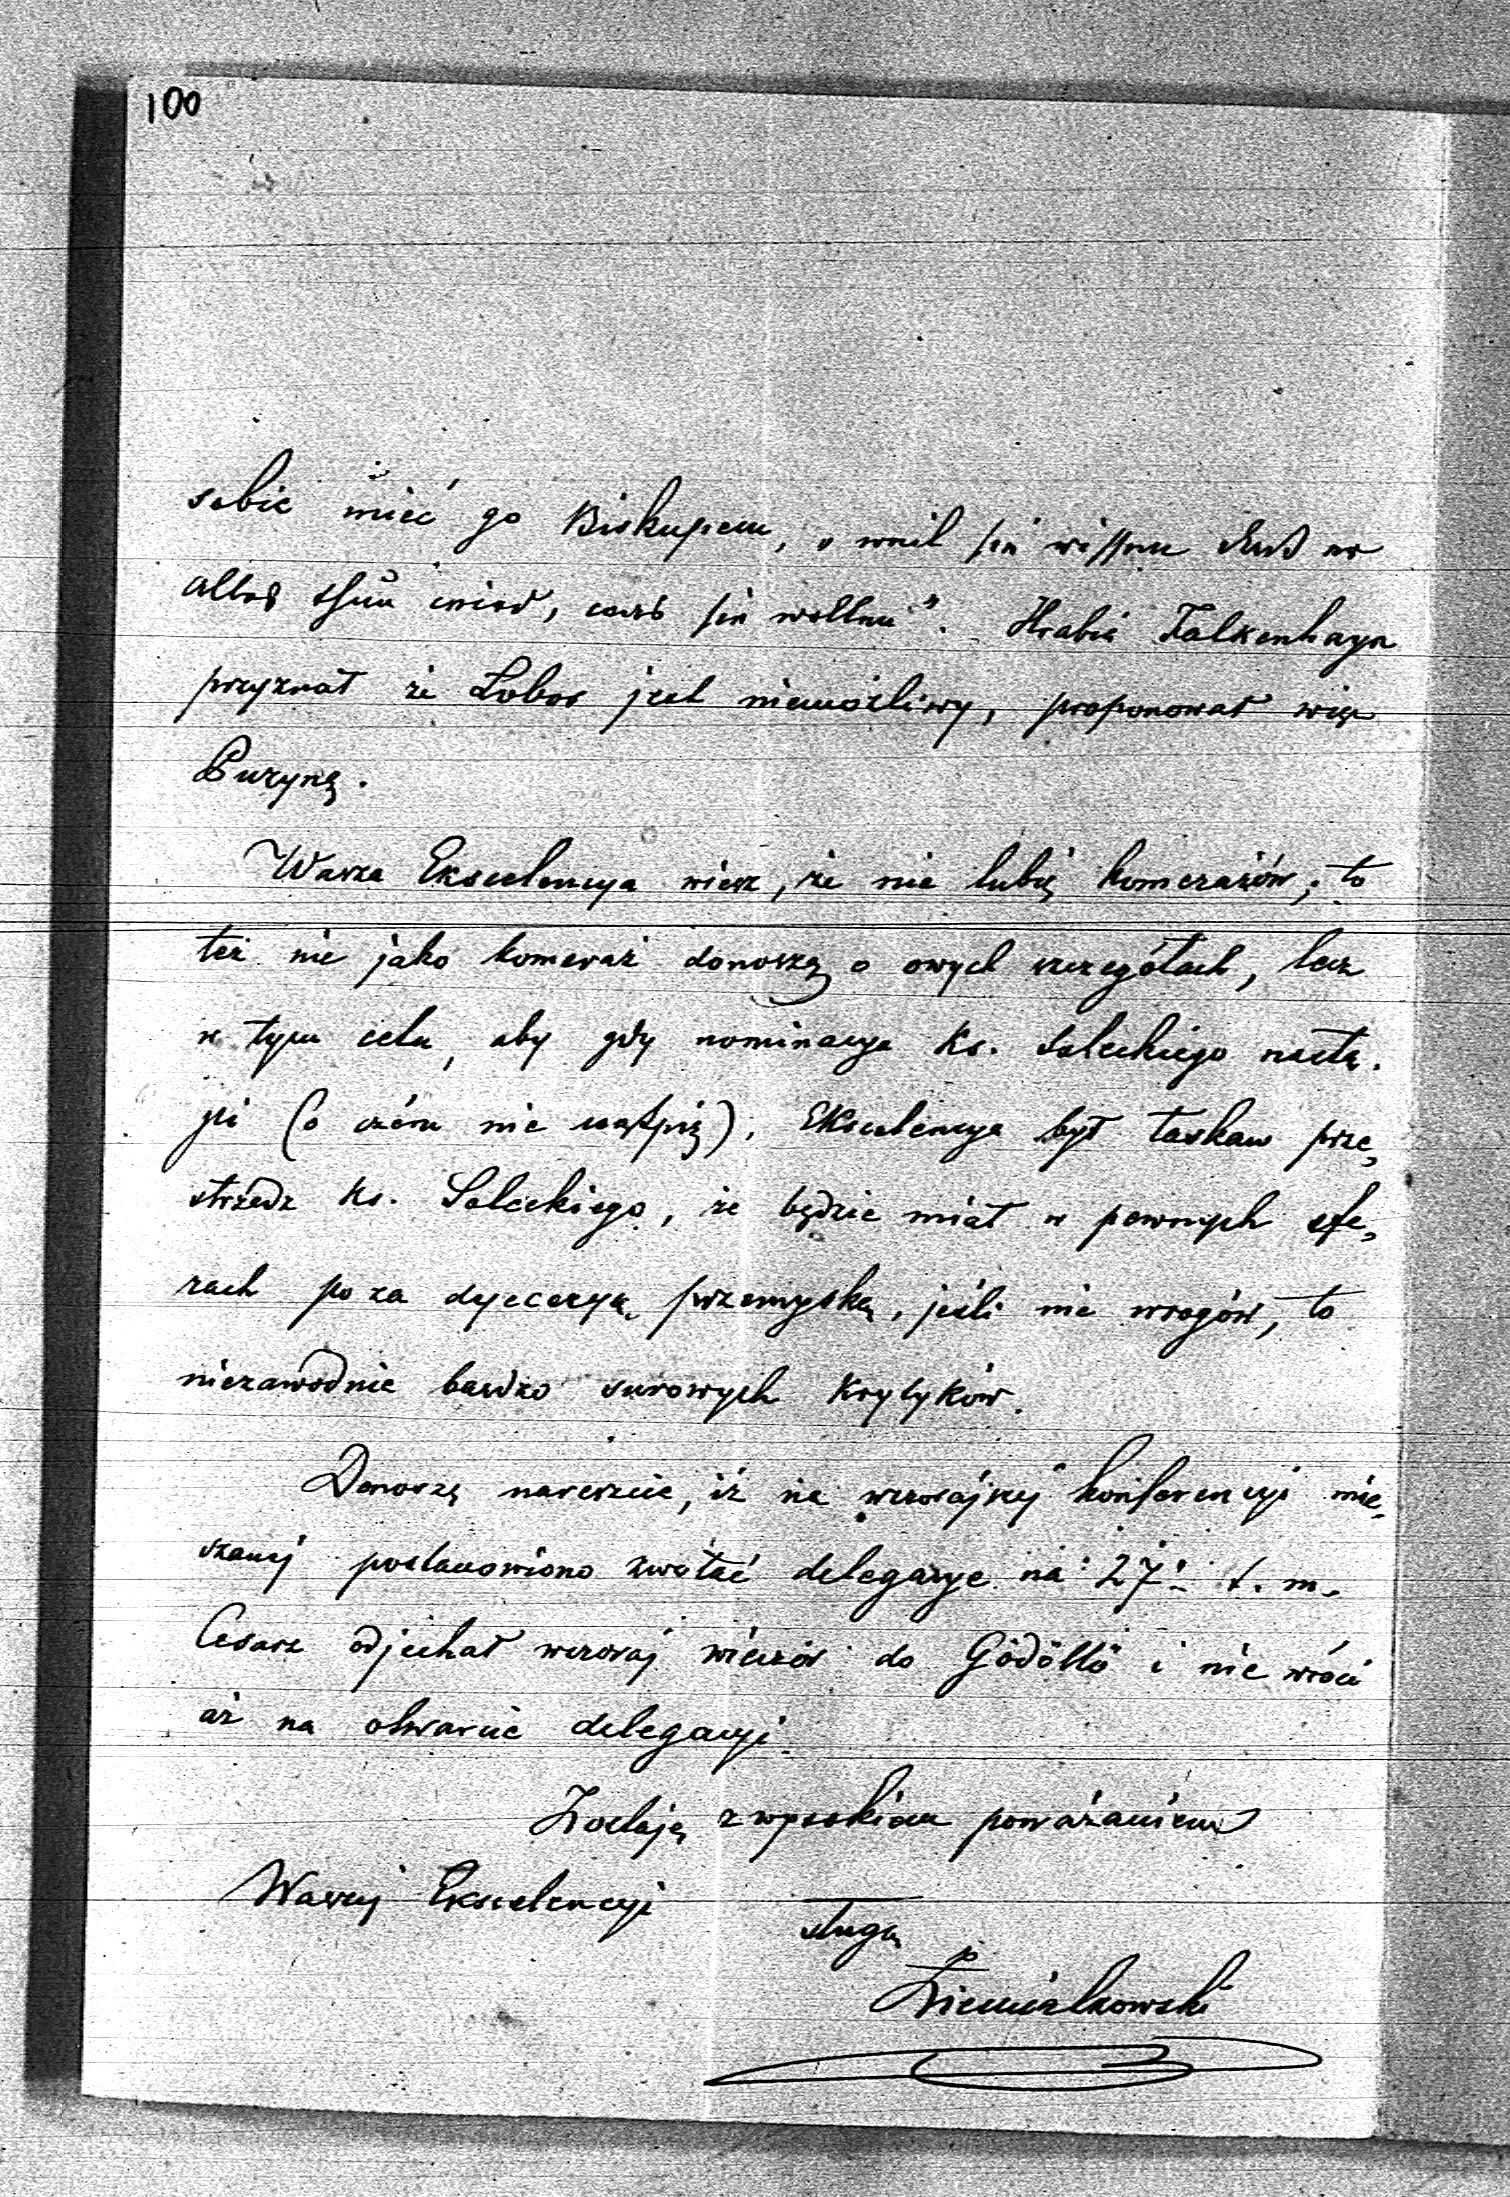 100
sobie mieć go Biskupem, „weil sie wissen daß er
alles thun wird, was sie wollen". Hrabia Falkenhayn
przyznał że Łobos jest niemożliwy, proponował więc
Puzynę.
Wasza Ekscelencya wiesz, że nie lubię komerażów; to
też nie jako komeraż donoszę o owych szczegółach, lecz
w tym celu, aby gdy nominacya Ks. Soleckiego nastą-
pi (o czém nie wątpię), Ekscelencya był łaskaw prze-
strzedz Ks. Soleckiego, że będzie miał w pewnych sfe-
rach poza dyecezyą przemyską, jeśli nie wrogów, to
niezawodnie bardzo surowych krytyków.
Donoszę nareszcie, iż na wczorajszej konferencyi mie-
szanej postanowiono zwołać delegacye na 27: t. m.
Cesarz odjechał wczoraj wieczór do Gödöllö i nie wróci
aż na otwarcie delegacyi
Zostaję z wysokiem poważaniem
Waszej Ekscelencyi
sługą
Ziemiałkowski